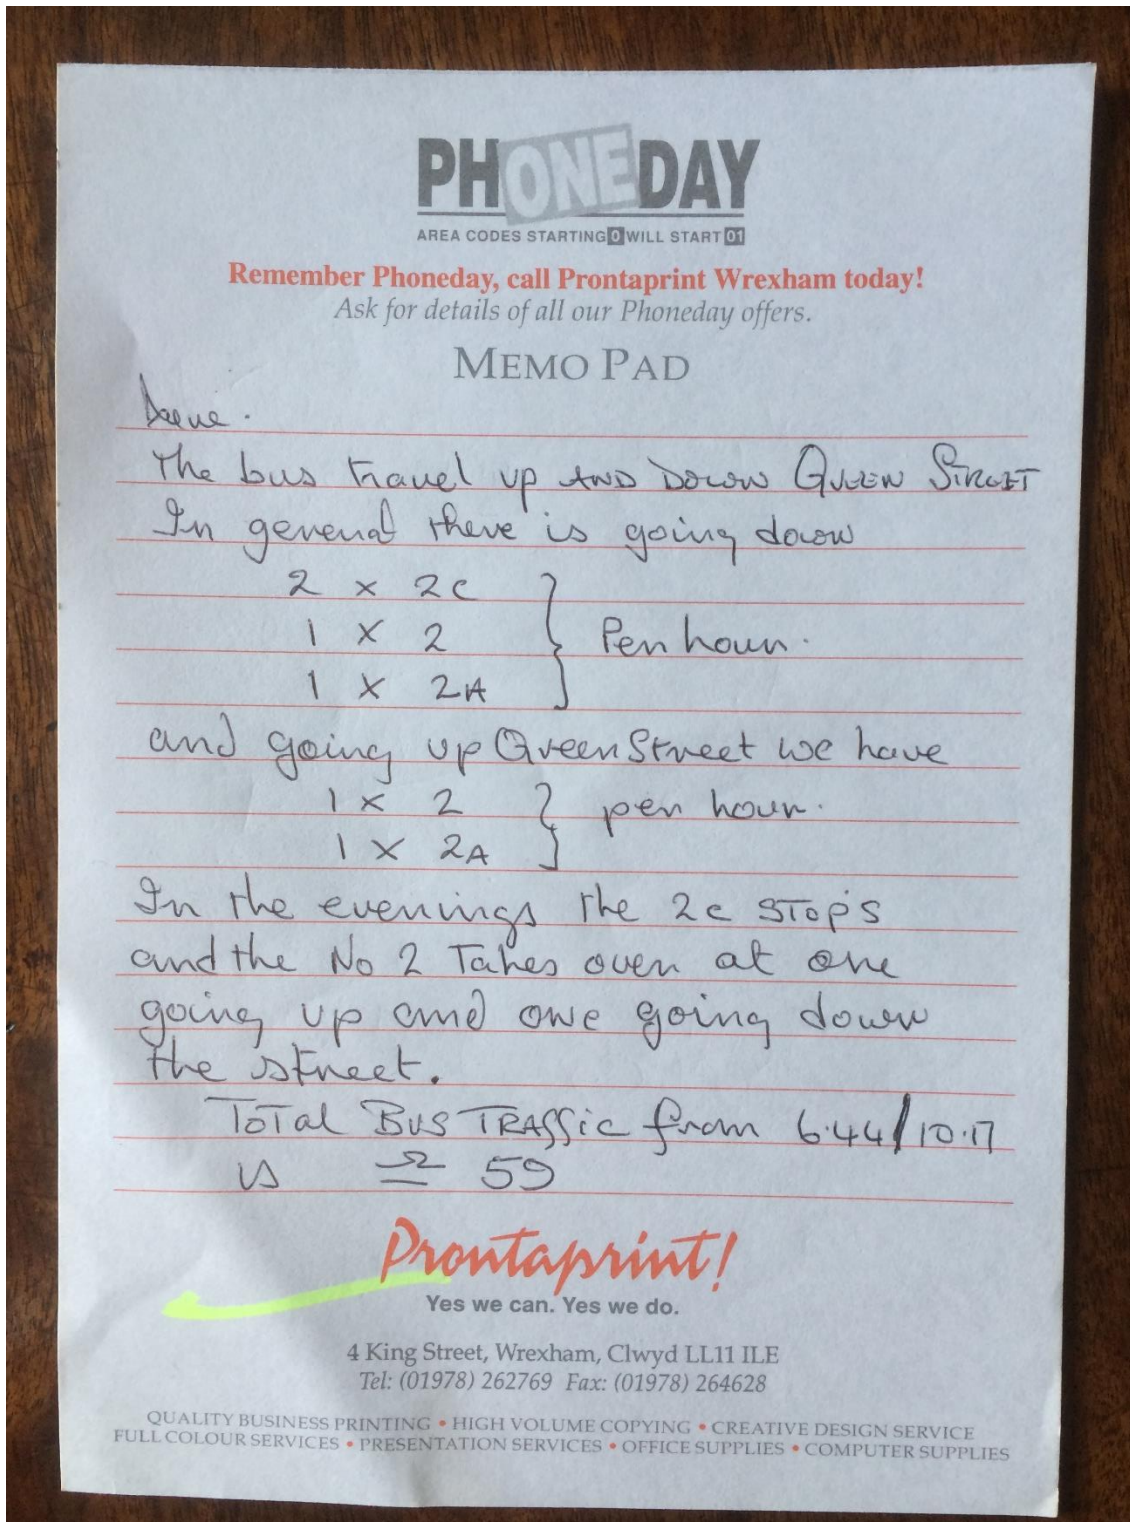 PHONEDAY
AREA CODES STARTING 0 WILL START 01
Remember Phoneday, call Prontaprint Wrexham today!
Ask for details of all our Phoneday offers.
MEMO PAD
The bus travel up AND DOWN QUEEN STREET
In general there is going down
2 x 2c
1 x 2 } Per hour.
1 x 2A
and going up Queen Street we have
1 x 2 } per hour.
1 x 2A
In the evenings the 2c STOP'S
and the No 2 Takes over at one
going up and one going down
the street.
TOTAL BUS TRAffic from 6.44/10.17
is ≏ 59
Prontaprint!
Yes we can. Yes we do.
4 King Street, Wrexham, Clwyd LL11 1LE
Tel: (01978) 262769 Fax: (01978) 264628
QUALITY BUSINESS PRINTING • HIGH VOLUME COPYING • CREATIVE DESIGN SERVICE
FULL COLOUR SERVICES • PRESENTATION SERVICES • OFFICE SUPPLIES • COMPUTER SUPPLIES